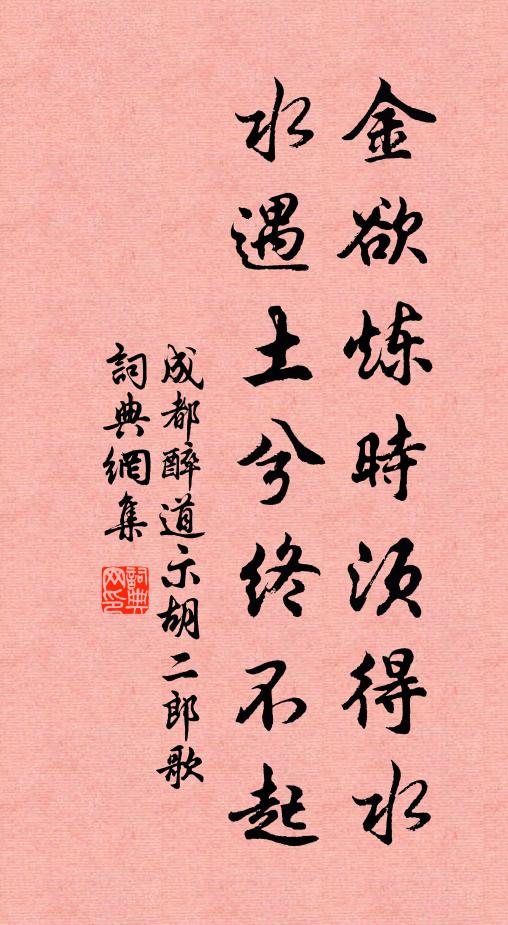 金欲炼時須得水
水遇土兮終不起
成都醉道示胡二郎歌
詞典網集
詞典網印